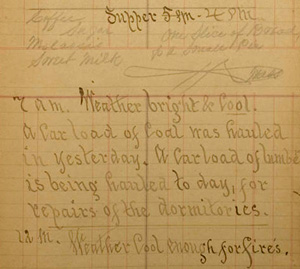 Supper 5 PM - 2 PM
Coffee
Sugar
Molasses
Sweet Milk
One Slice of Bread
7 am. Weather bright & Cool.
A Car load of Coal was hauled
in yesterday. A Carload of lumbe
is being hauled to day, for
repairs of the dormitories.
12 M. Weather Cool enough for fire's.